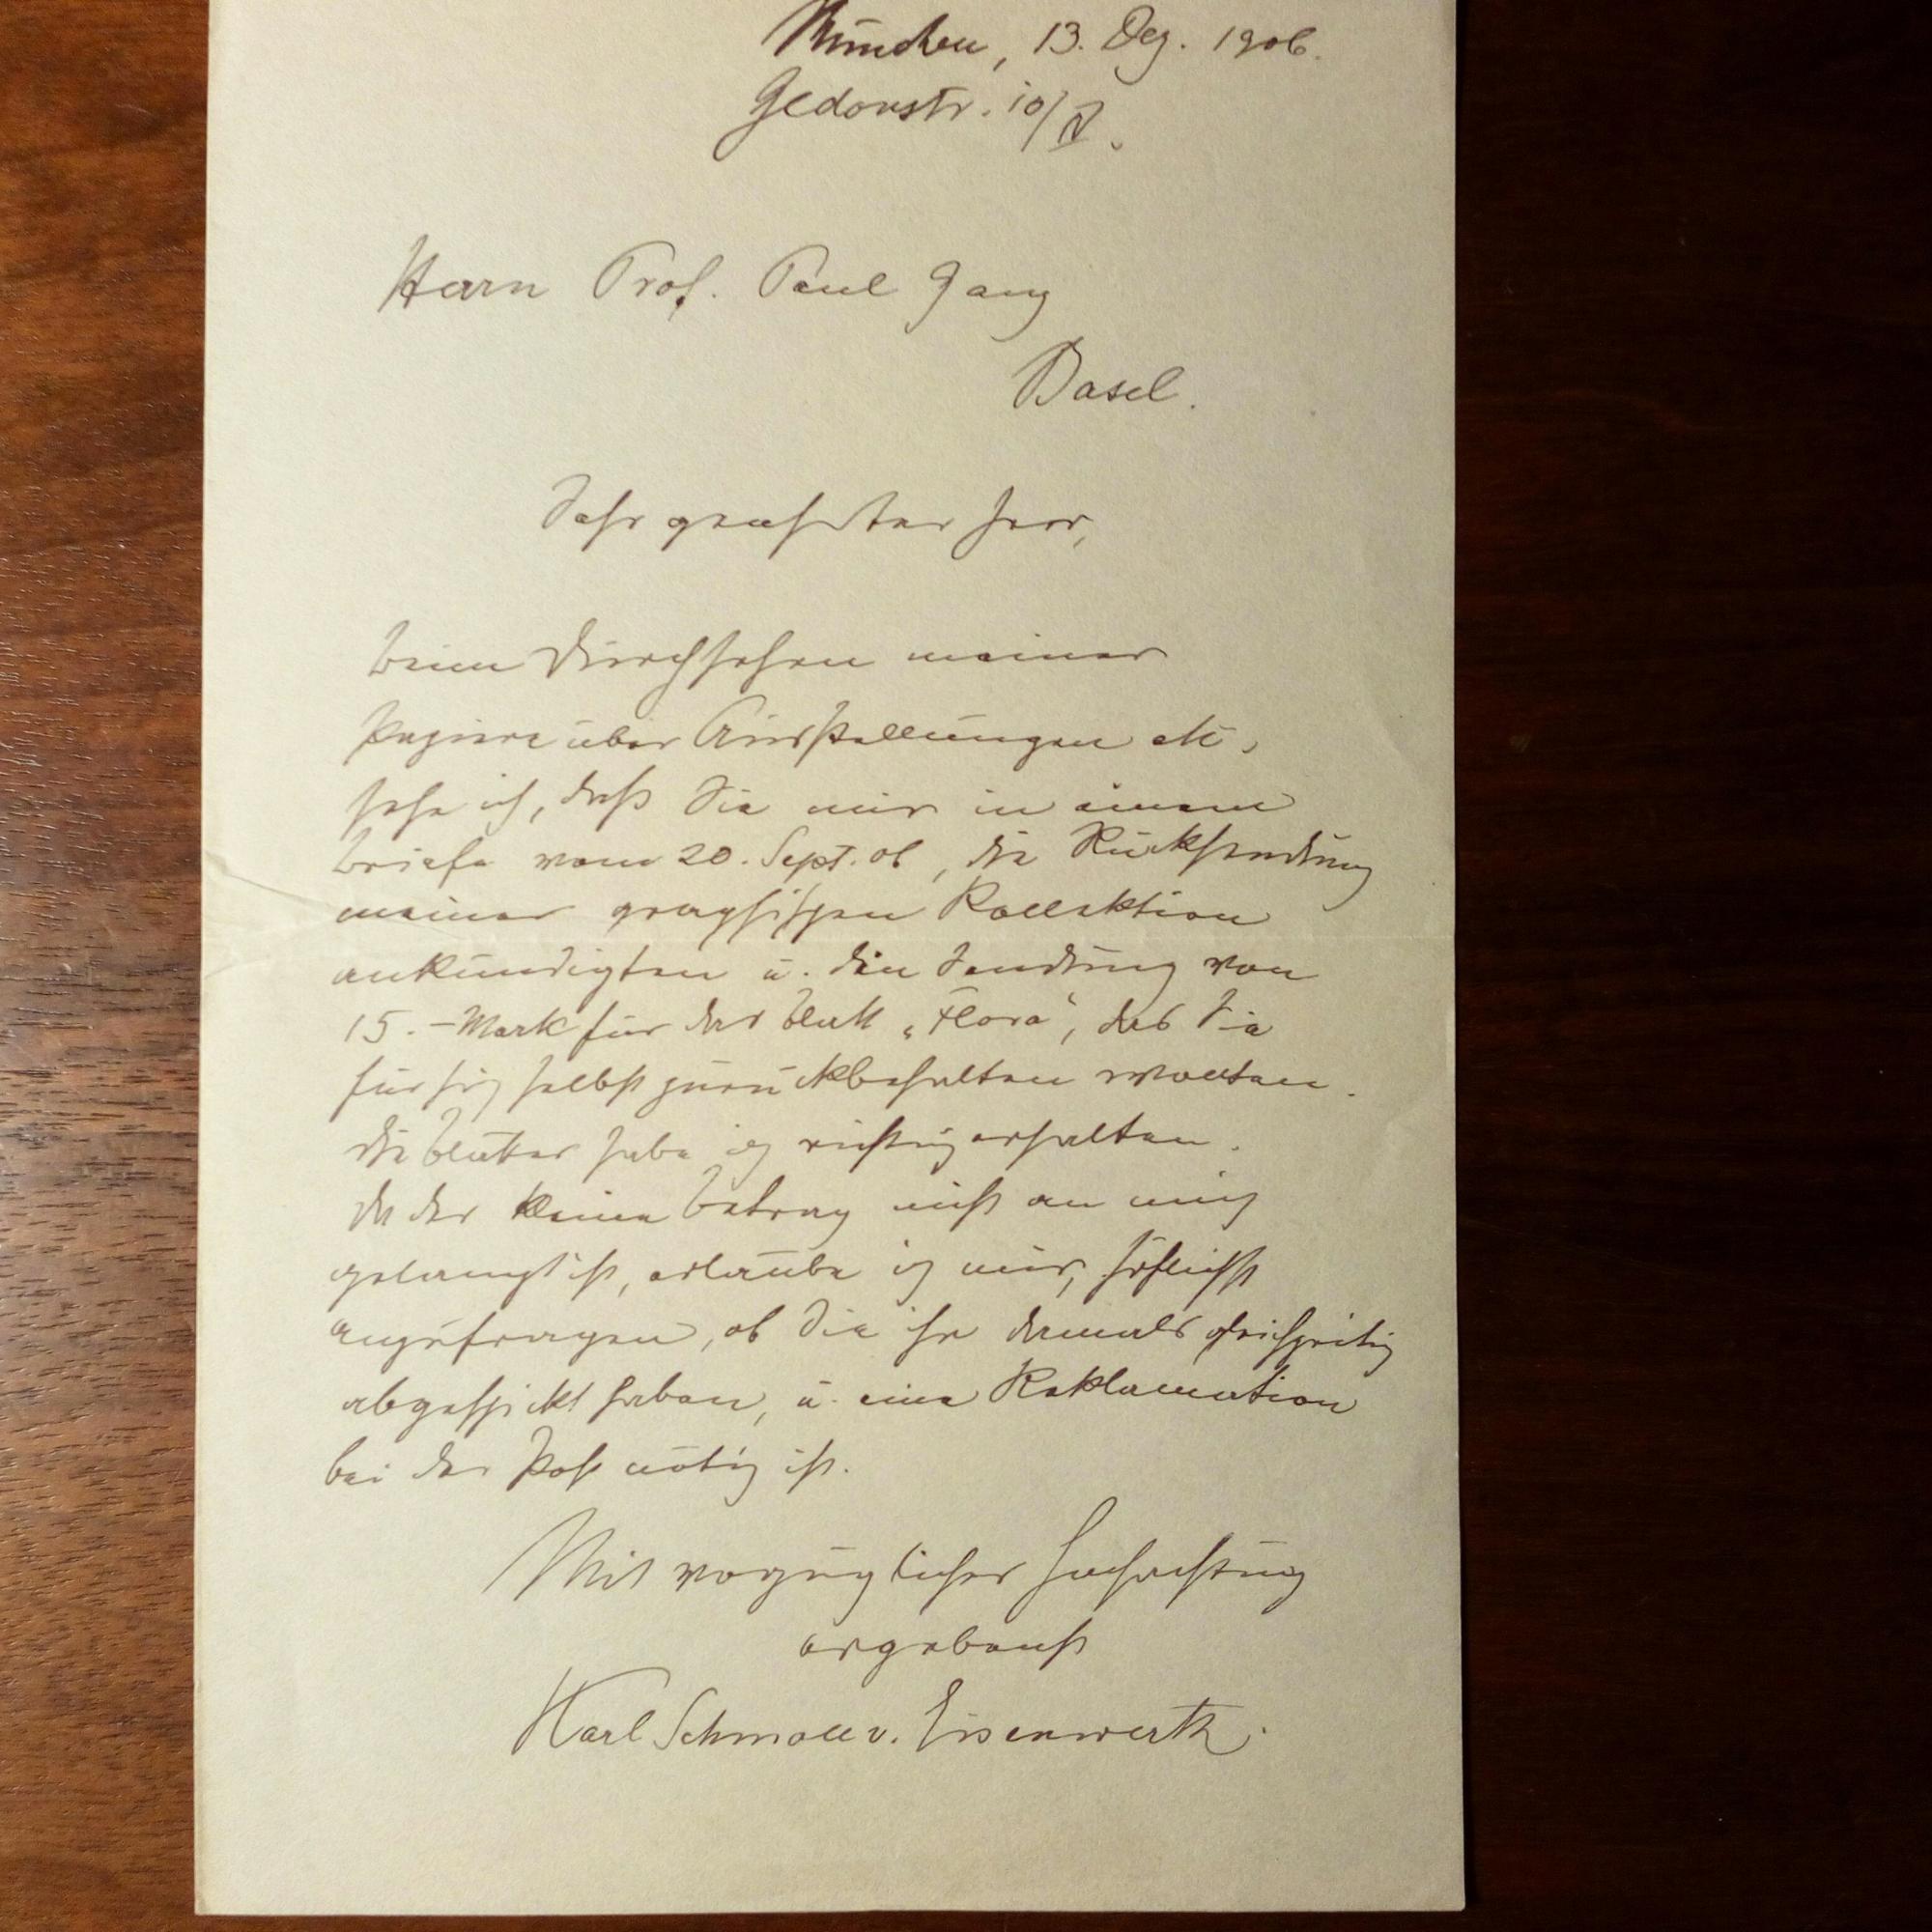 München, 13. Dez. 1906.
Gedonstr. 10/IV.
Herrn Prof. Paul Ganz
Basel.
Sehr geehrter Herr,
beim Durchsehen meiner
Papiere über Ausstellungen etc,
sehe ich, daß Sie mir in einem
Briefe vom 20. Sept. 06, die Rücksendung
meiner graphischen Kollektion
ankündigten u. die Sendung von
15.– Mark für das Blatt „Flora“, das Sie
für sich selbst zurückbehalten wollten.
Die Blätter habe ich richtig erhalten.
Da der kleine Betrag nicht an mich
gelangt ist, erlaube ich mir, höflichst
anzufragen, ob Sie ihn damals gleichzeitig
abgeschickt haben, u. eine Reklamation
bei der Post nötig ist.
Mit vorzüglicher Hochachtung
ergebenst
Karl Schmoll v. Eisenwerth.